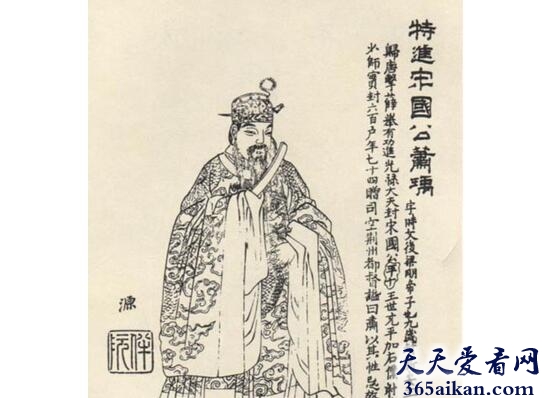 特進宋國公蕭瑀
字時文後梁明帝子也九歲
歸唐擊薛舉有功進光祿大夫封宋國公王世充平加右僕射
少師實封六百户年七十四贈司空荊州都督謚曰肅以其性忌
源
伴阮
天天爱看网
365aikan.com